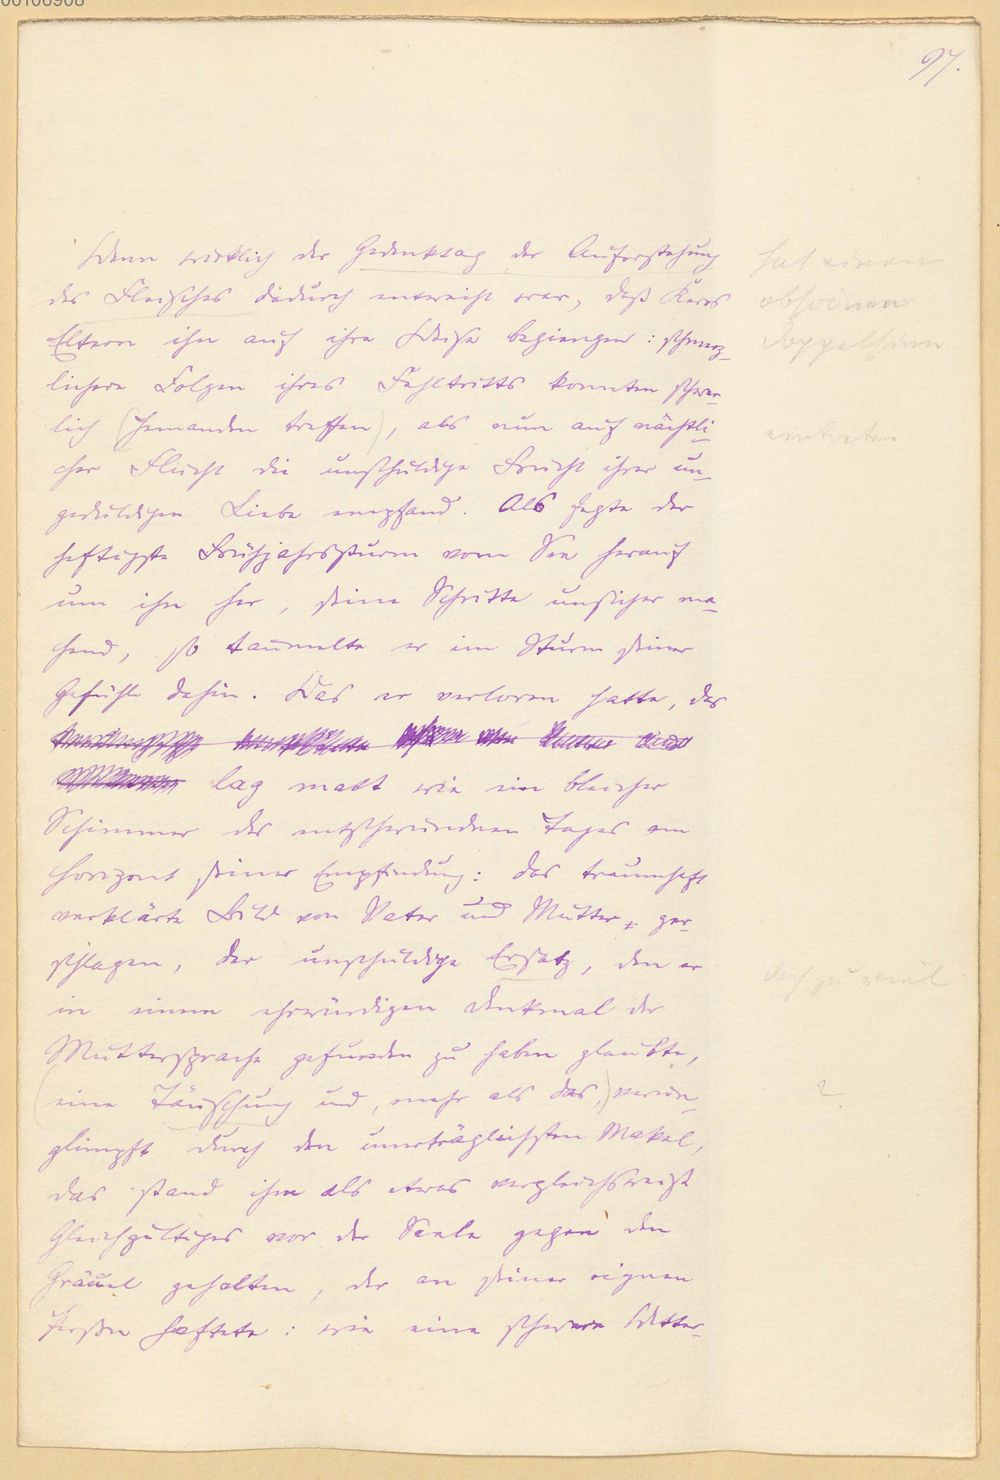 00106908
97.
Wenn wirklich der Gedenktag der Auferstehung
des Fleisches dadurch entweiht war, daß Kerns
Eltern ihn auf ihre Weise begiengen: schmerz-
lichere Folgen ihres Fehltritts konnten schwer-
lich (Jemanden treffen), als nun auf nächtli-
cher Flucht die unschuldige Frucht ihrer un-
geduldigen Liebe empfand. Als fegte der
heftigste Frühjahrssturm vom See herauf
um ihn her, seine Schritte unsicher ma-
chend, so taumelte er im Sturm seiner
Gefühle dahin. Was er verloren hatte, das
lag matt wie ein bleicher
Schimmer des entschwundnen Tages am
Horizont seiner Empfindung: das traumhaft
verklärte Bild von Vater und Mutter zer-
schlagen, der unschuldige Ersatz, den er
in einem ehrwürdigen Denkmal der
Muttersprache gefunden zu haben glaubte,
(eine Täuschung und, mehr als das,) verun-
glimpft durch den unerträglichsten Makel,
das stand ihm als etwas vergleichsweise
Gleichgültiges vor der Seele gegen den
Gräuel gehalten, der an seiner eignen
Person haftete: wie eine schwere Wetter-
hat einen
obscönen
Doppelsinn
eintreten
doch zu viel
?